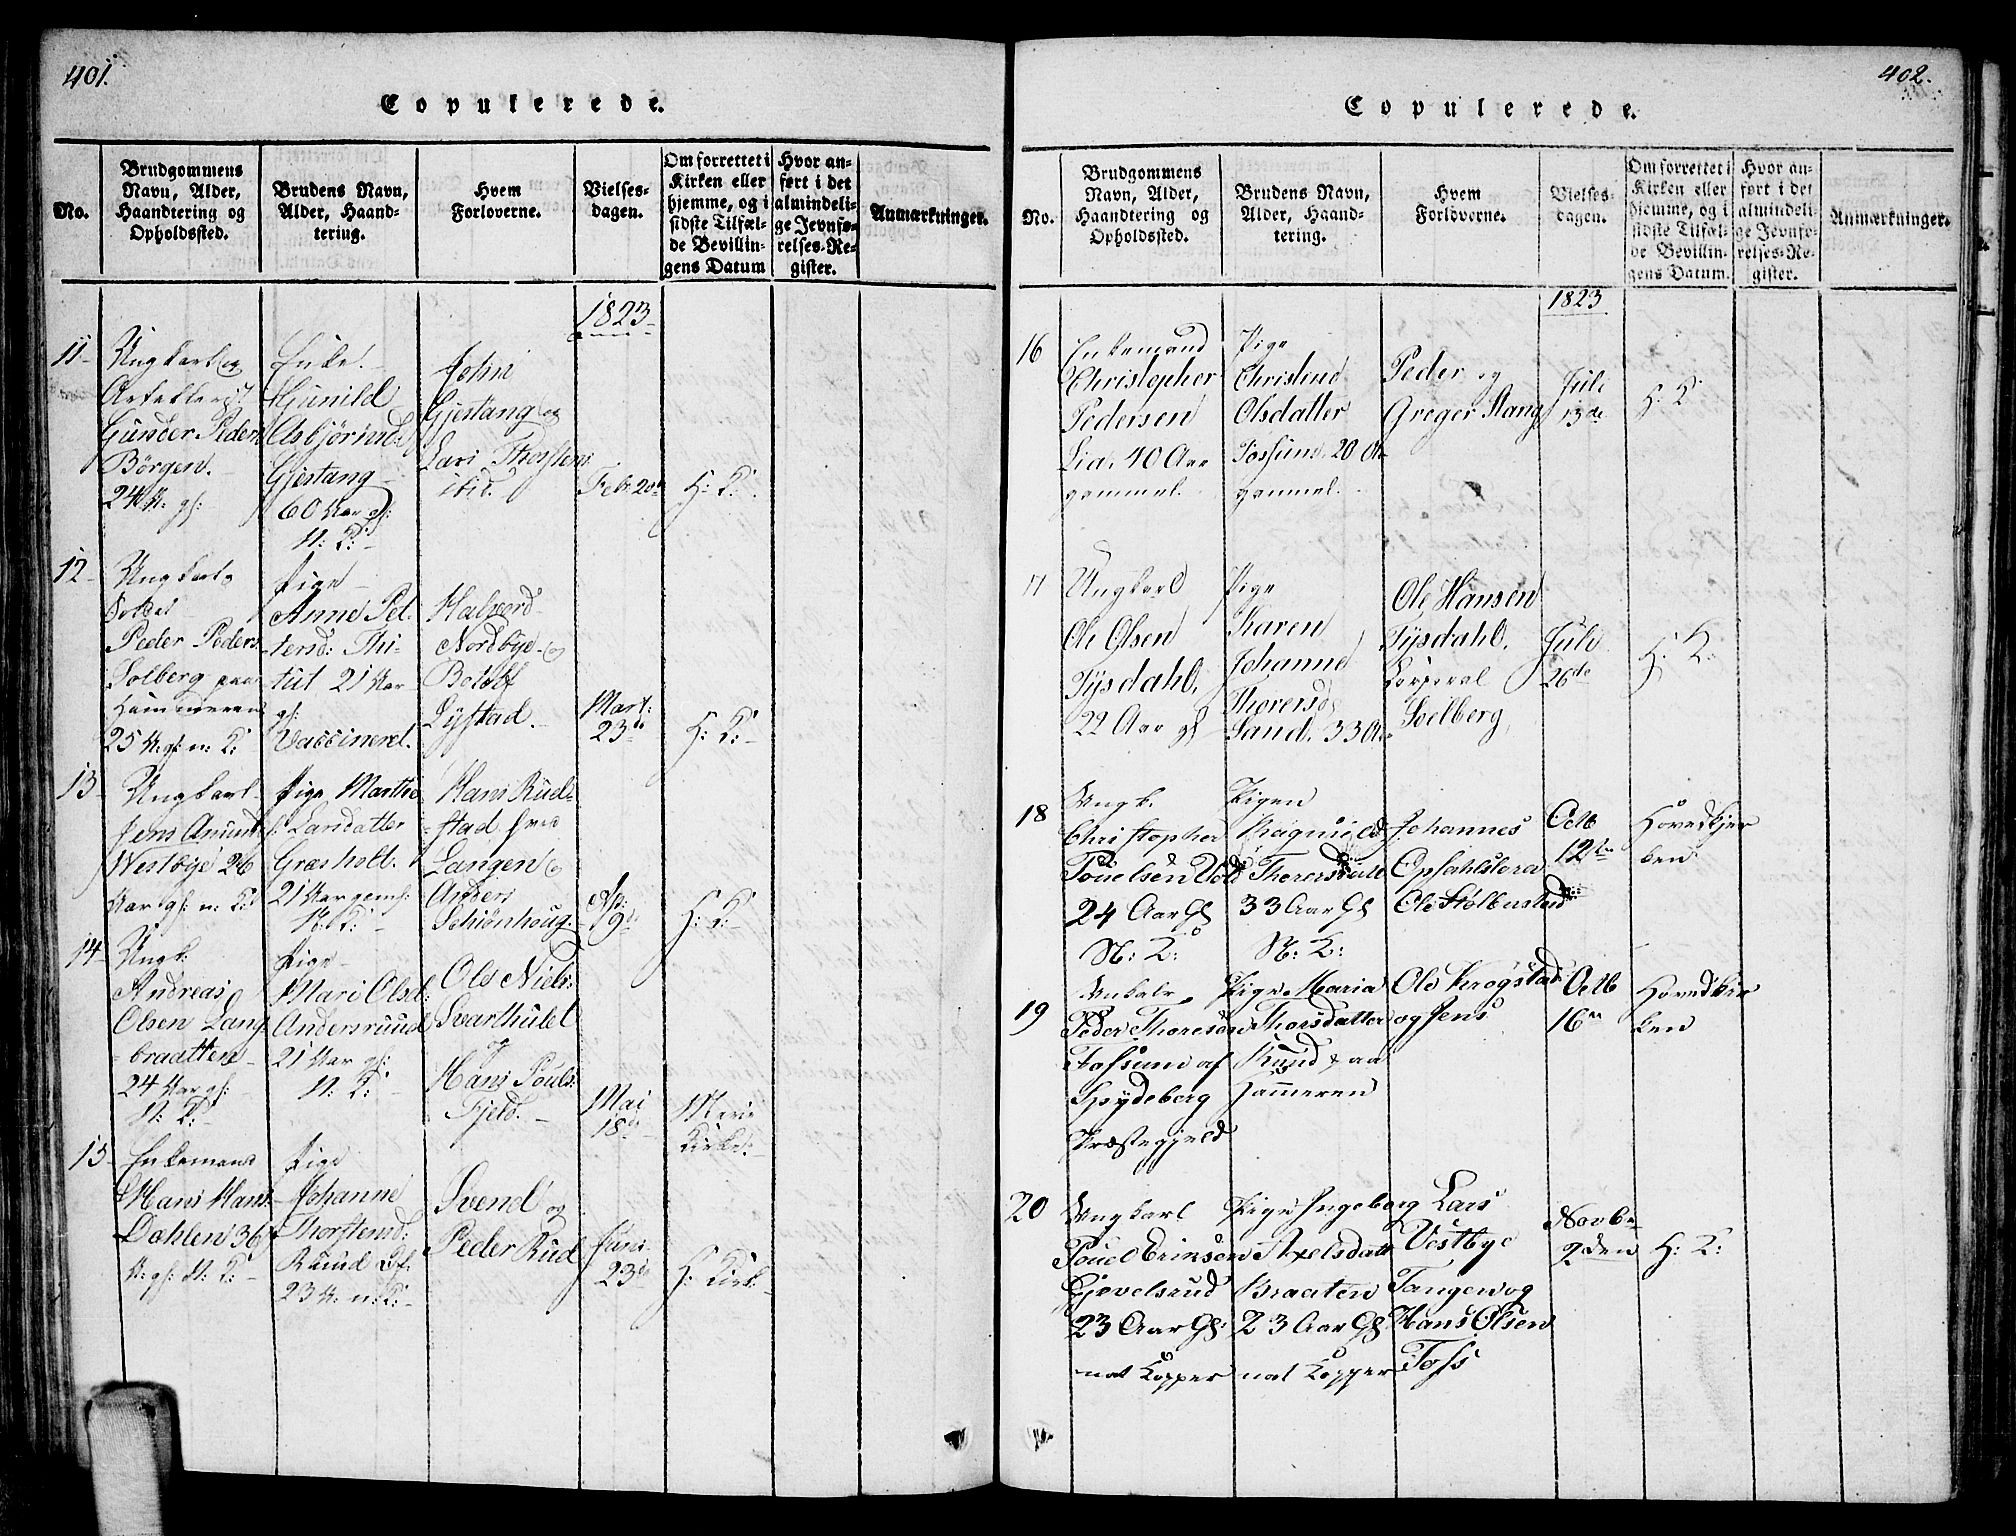 401.
Copulerede.
No.
Brudgommens Navn, Alder, Haandtering og Opholdssted.
Brudens Navn, Alder, Haandtering.
Hvem Forloverne.
Vielsesdagen.
Om forrettet i Kirken eller hjemme, og i sidste Tilfælde Bevillingens Datum
Hvor anført i det almindelige Jevnførelses-Register.
Anmærkninger.
1823
11
Ungkarl og
Gunder Peders
Børgen.
24 A: gl:
Enke
Gunild
Asbjørnsd:
Gjestang
60 Aar gl:
N: K:
John
Gjestang og
Lars Thorstens
ibid.
Feb: 20de
H: K:
12
Ungkarl
Soldat
Peder Peders:
Solberg paa
Hammeren
25 A: gl: n: K:
Pige
Anne Pet-
tersd: Thi-
tut 21 Aar
gl:
Vaccineret.
Halvord
Nordbye og
Botolf
Lystad.
Mart:
23de
H: K:
13
Ungkarl
Jens Amund
Westbye 26
Aar gl: n: K:
Pige Marthe
Larsdatter
Græsholt.
21 Aar gaml:
N: K:
Hans Rud-
stad
Langen og
Anders
Schiønhoug.
Ap:
9de
H: K:
14
Ungk:
Andreas
Olsen Lang-
braatten
24 Aar gl:
N: K:
Pige
Mari Olsd:
Andersruud
21 Aar gl:
N: K:
Ole Niels:
Svarthulet
og
Hans Pouls:
Fjeld.
Mai
18de
Marie
Kirke:
15
Enkemand
Hans Hans:
Dahlen 36
A: gl: N: K:
Pige
Johanne
Thorstensd:
Ruud
23 A: n: K:
Svend og
Peder Rud
Juni
23de
H: Kirk
402.
Copulerede.
No.
Brudgommens Navn, Alder, Haandtering og Opholdssted.
Brudens Navn, Alder, Haandtering.
Hvem Forloverne.
Vielsesdagen.
Om forrettet i Kirken eller hjemme, og i sidste Tilfælde Bevillingens Datum.
Hvor anført i det almindelige Jevnførelses-Register.
Anmærkninger.
1823
16
Enkemand
Christopher
Pedersen
Lia. 40 Aar
gammel.
Pige
Christine
Olsdatter
Fossum. 20 Aar
gammel.
Peder og
Greger Stang
Juli
13de
H: K
17
Ungkarl
Ole Olsen
Tysdahl.
22 Aar gl
Pige
Karen
Johanne
Thorersd
Sand. 33 Aar
Ole Hansen
Tysdahl.
Corporal
Solberg.
Juli
26de
H: K:
18
Ungk.
Christopher
Pouelsen
24 Aar Gl
N: K:
Pigen
Ragnild
Thorersdatt
33 Aar Gl
N: K:
Johannes
Opsahlstera
Ole Stølbustad
Octb
12te
Hovedkjer
ken
19
Unkalr
Peder Thoresen
Fossum af
Spydeberg
Præstegjeld
Pige Maria
Thorsdatter
Hammeren
Ole Krogstad
og Jens
Octb
16en
Hovedkir
ken
20
Ungkarl
Pouel Eriksen
Gjevelsrud
23 Aar Gl:
nat Kopper
Pige Ingeborg
Axelsdatt
Braaten
23 Aar Gl
nat Kopper
Lars
Vestbye
Tangen og
Hans Olsen
Foss
Novbr
2den
H: K: